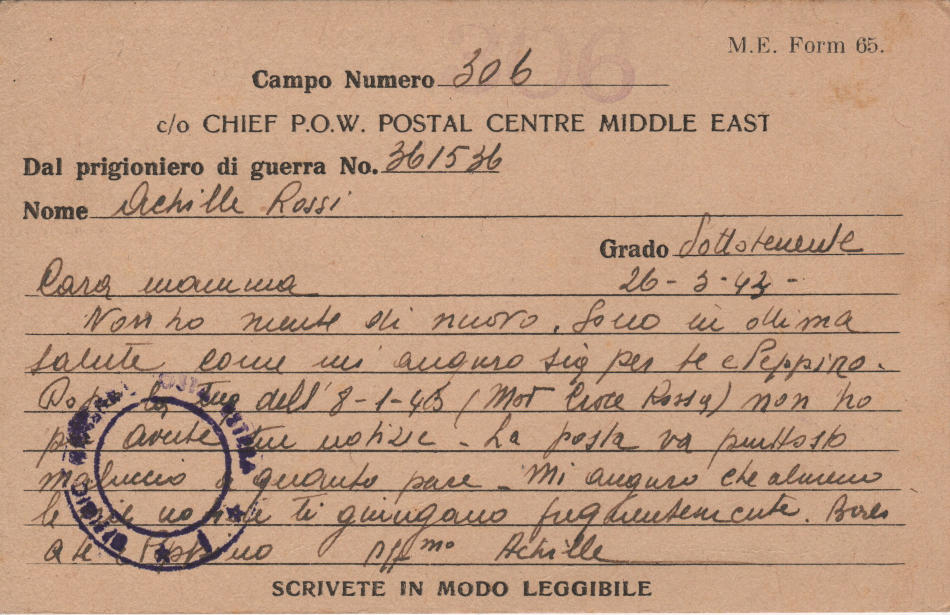 306
M.E. Form 65.
Campo Numero 306
c/o CHIEF P.O.W. POSTAL CENTRE MIDDLE EAST
Dal prigioniero di guerra No. 361536
Nome Achille Rossi
Grado Sottotenente
Cara mamma 26-3-43-
Non ho niente di nuovo. Sono in ottima
salute come mi auguro sia per te e Peppino.
Dopo la tua dell'8-1-43 (Mod Croce Rossa) non ho
più avute tue notizie. La posta va piuttosto
maluccio a quanto pare. Mi auguro che almeno
le mie notizie ti giungano frequentemente. Baci
a te Peppino aff.mo Achille
SCRIVETE IN MODO LEGGIBILE